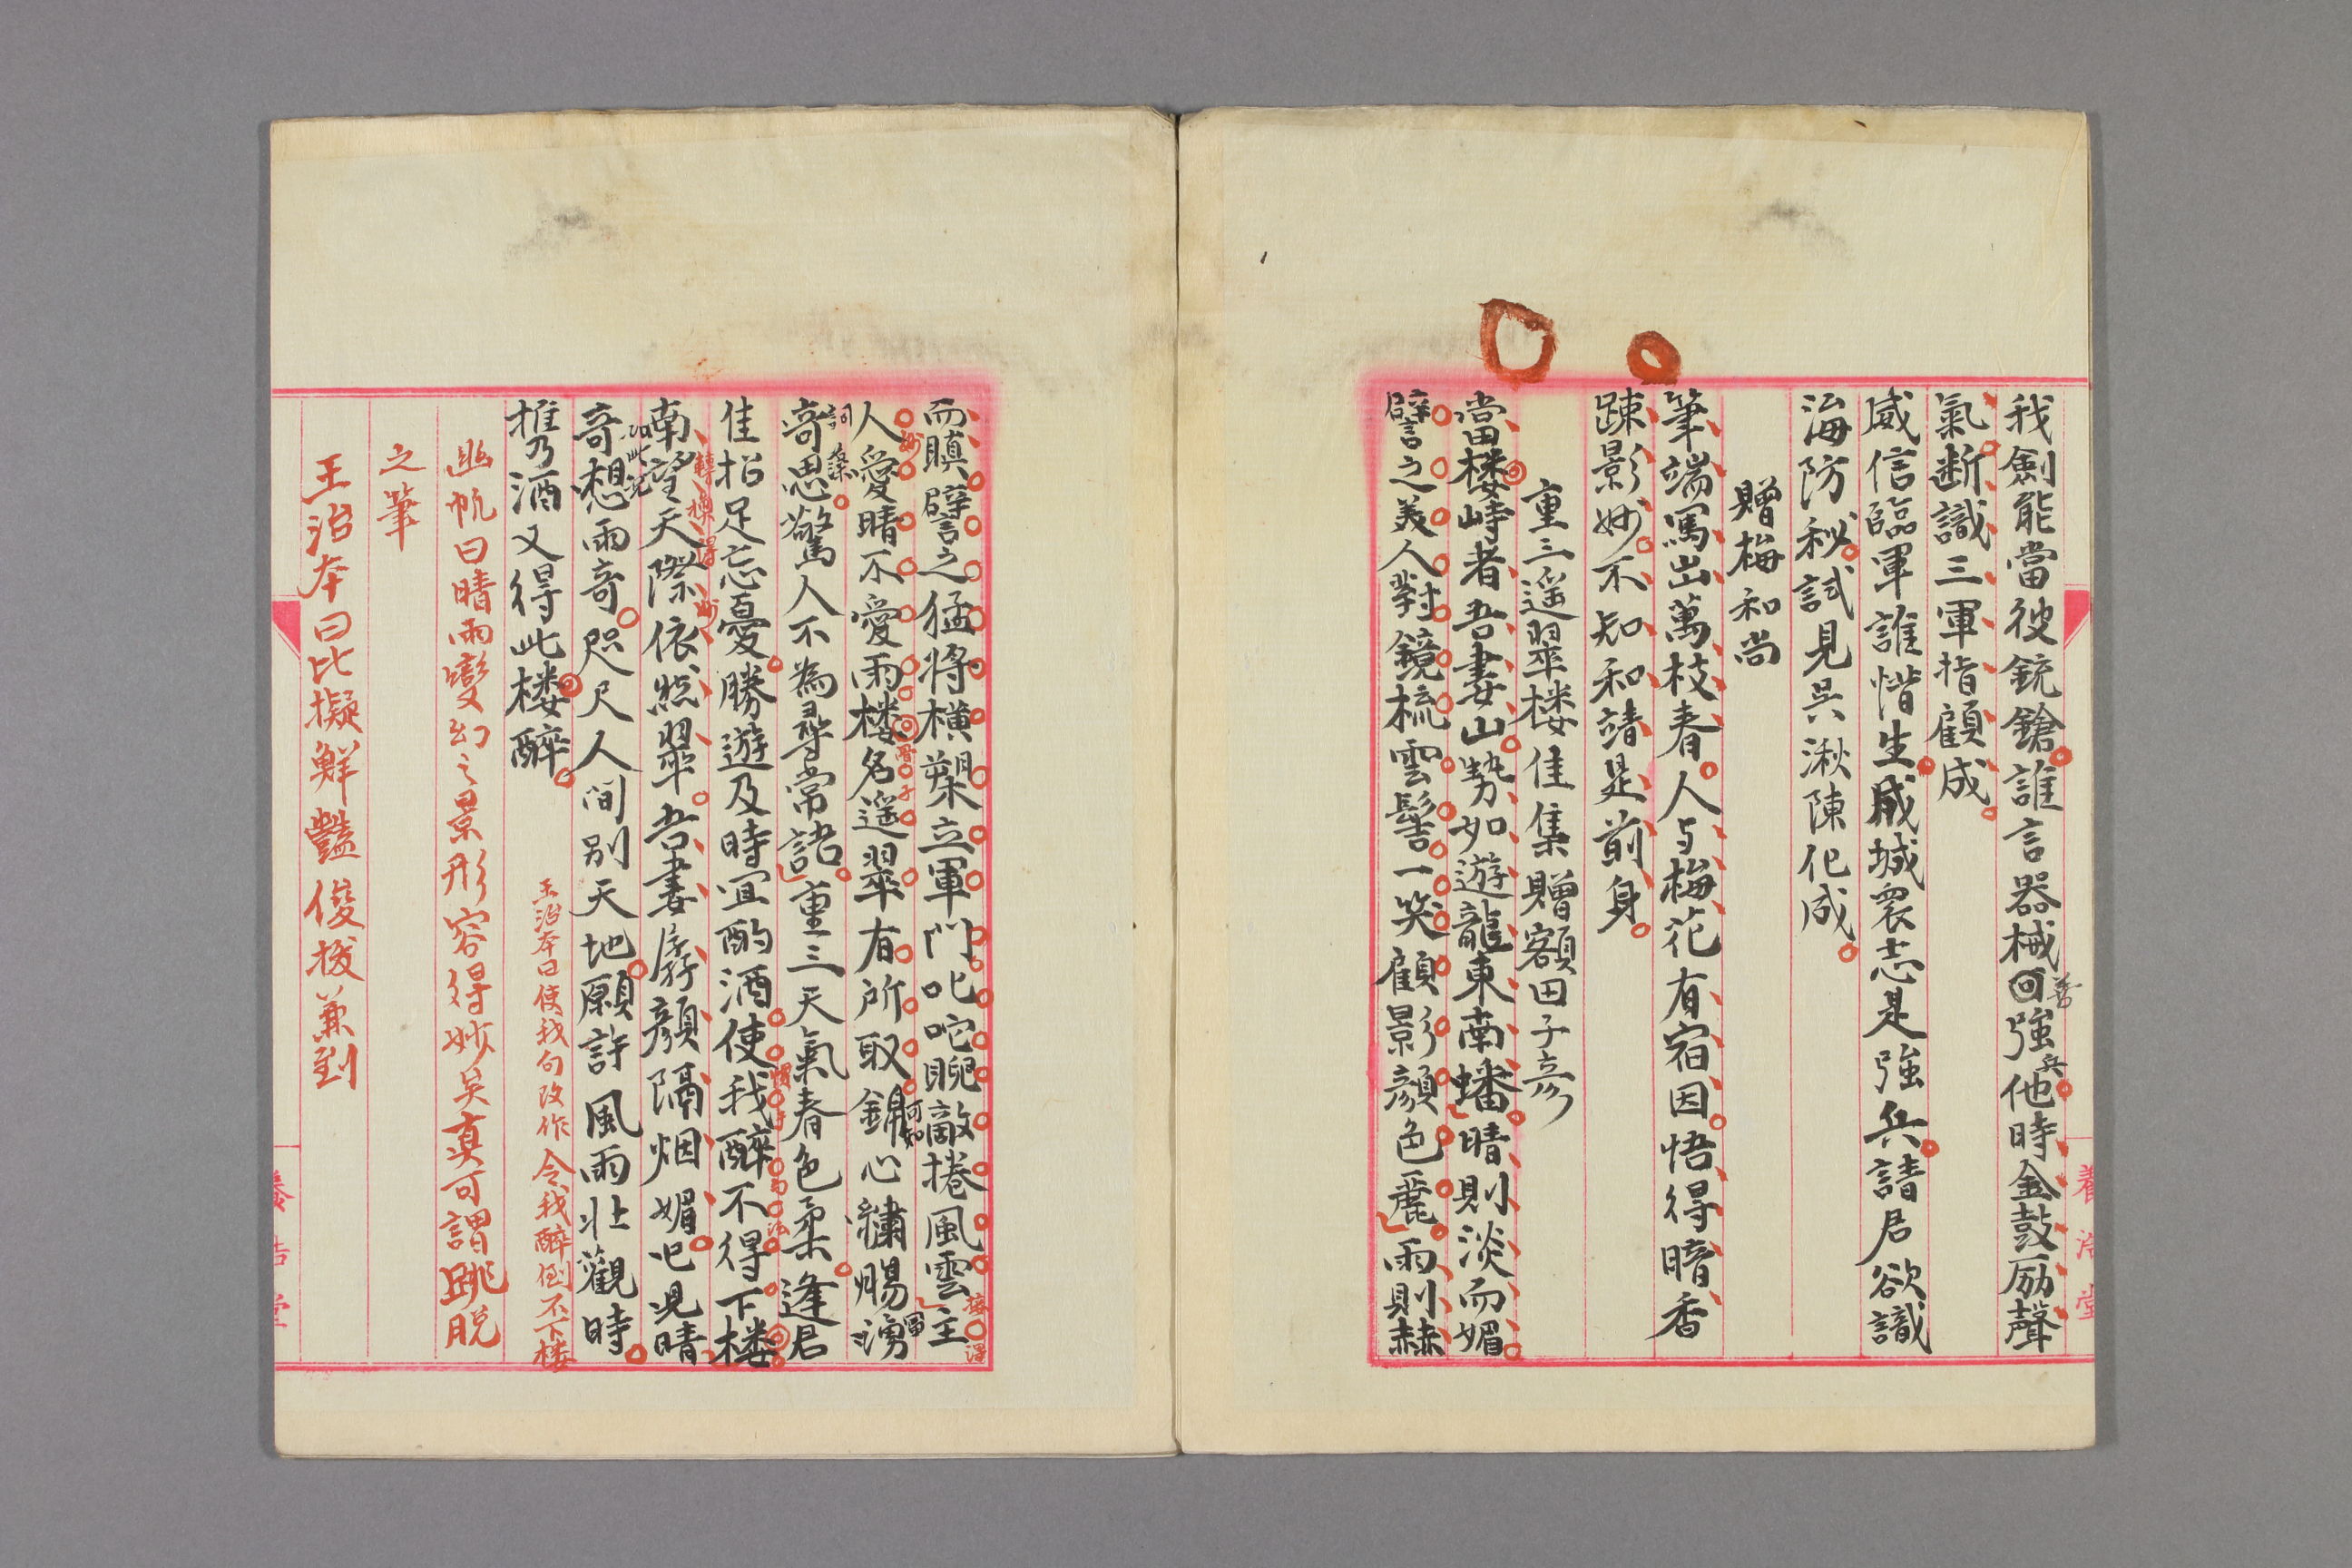 我劍能當彼銃鎗誰言器械回強他時金鼓励聲
善
兵
氣断識三軍指顧成
威信臨軍誰惜生成城衆志是強兵請君欲識
海防秘試見呉湫陳化成
贈梅和尚
筆端写出萬枝春人与梅花有宿因悟得暗香
踈影妙不知和靖是前身
重三遥翠楼佳集贈額田子彦
當楼峙者吾妻山勢如遊龍東南蟠晴則淡而媚
譬之美人對鏡梳雲髻一笑顧影顔色麗雨則赫
養浩堂
而瞋譬之猛将横槊立軍門叱咤睨敵捲風雲主
接得
人愛晴不愛雨楼名遥翠有所取錦心繍腸湧
妙
可知
冨
奇思驚人不為尋常語重三天氣春色柔逢君
詞藻
佳招足忘憂勝遊及時宜酌酒使我醉不得下楼
南望天際依然翠吾妻孱顔隔烟媚已見晴
轉換得妙
奇想雨奇咫尺人间别天地願許風雨壮觀時
如此况
携乃酒又得此楼醉
王治本曰使我句改作令我醉倒不下楼
幽帆曰晴雨変幻之景形容得妙矣真可謂跳脱
之筆
王治本曰比擬鮮豔俊拔兼到
養浩堂